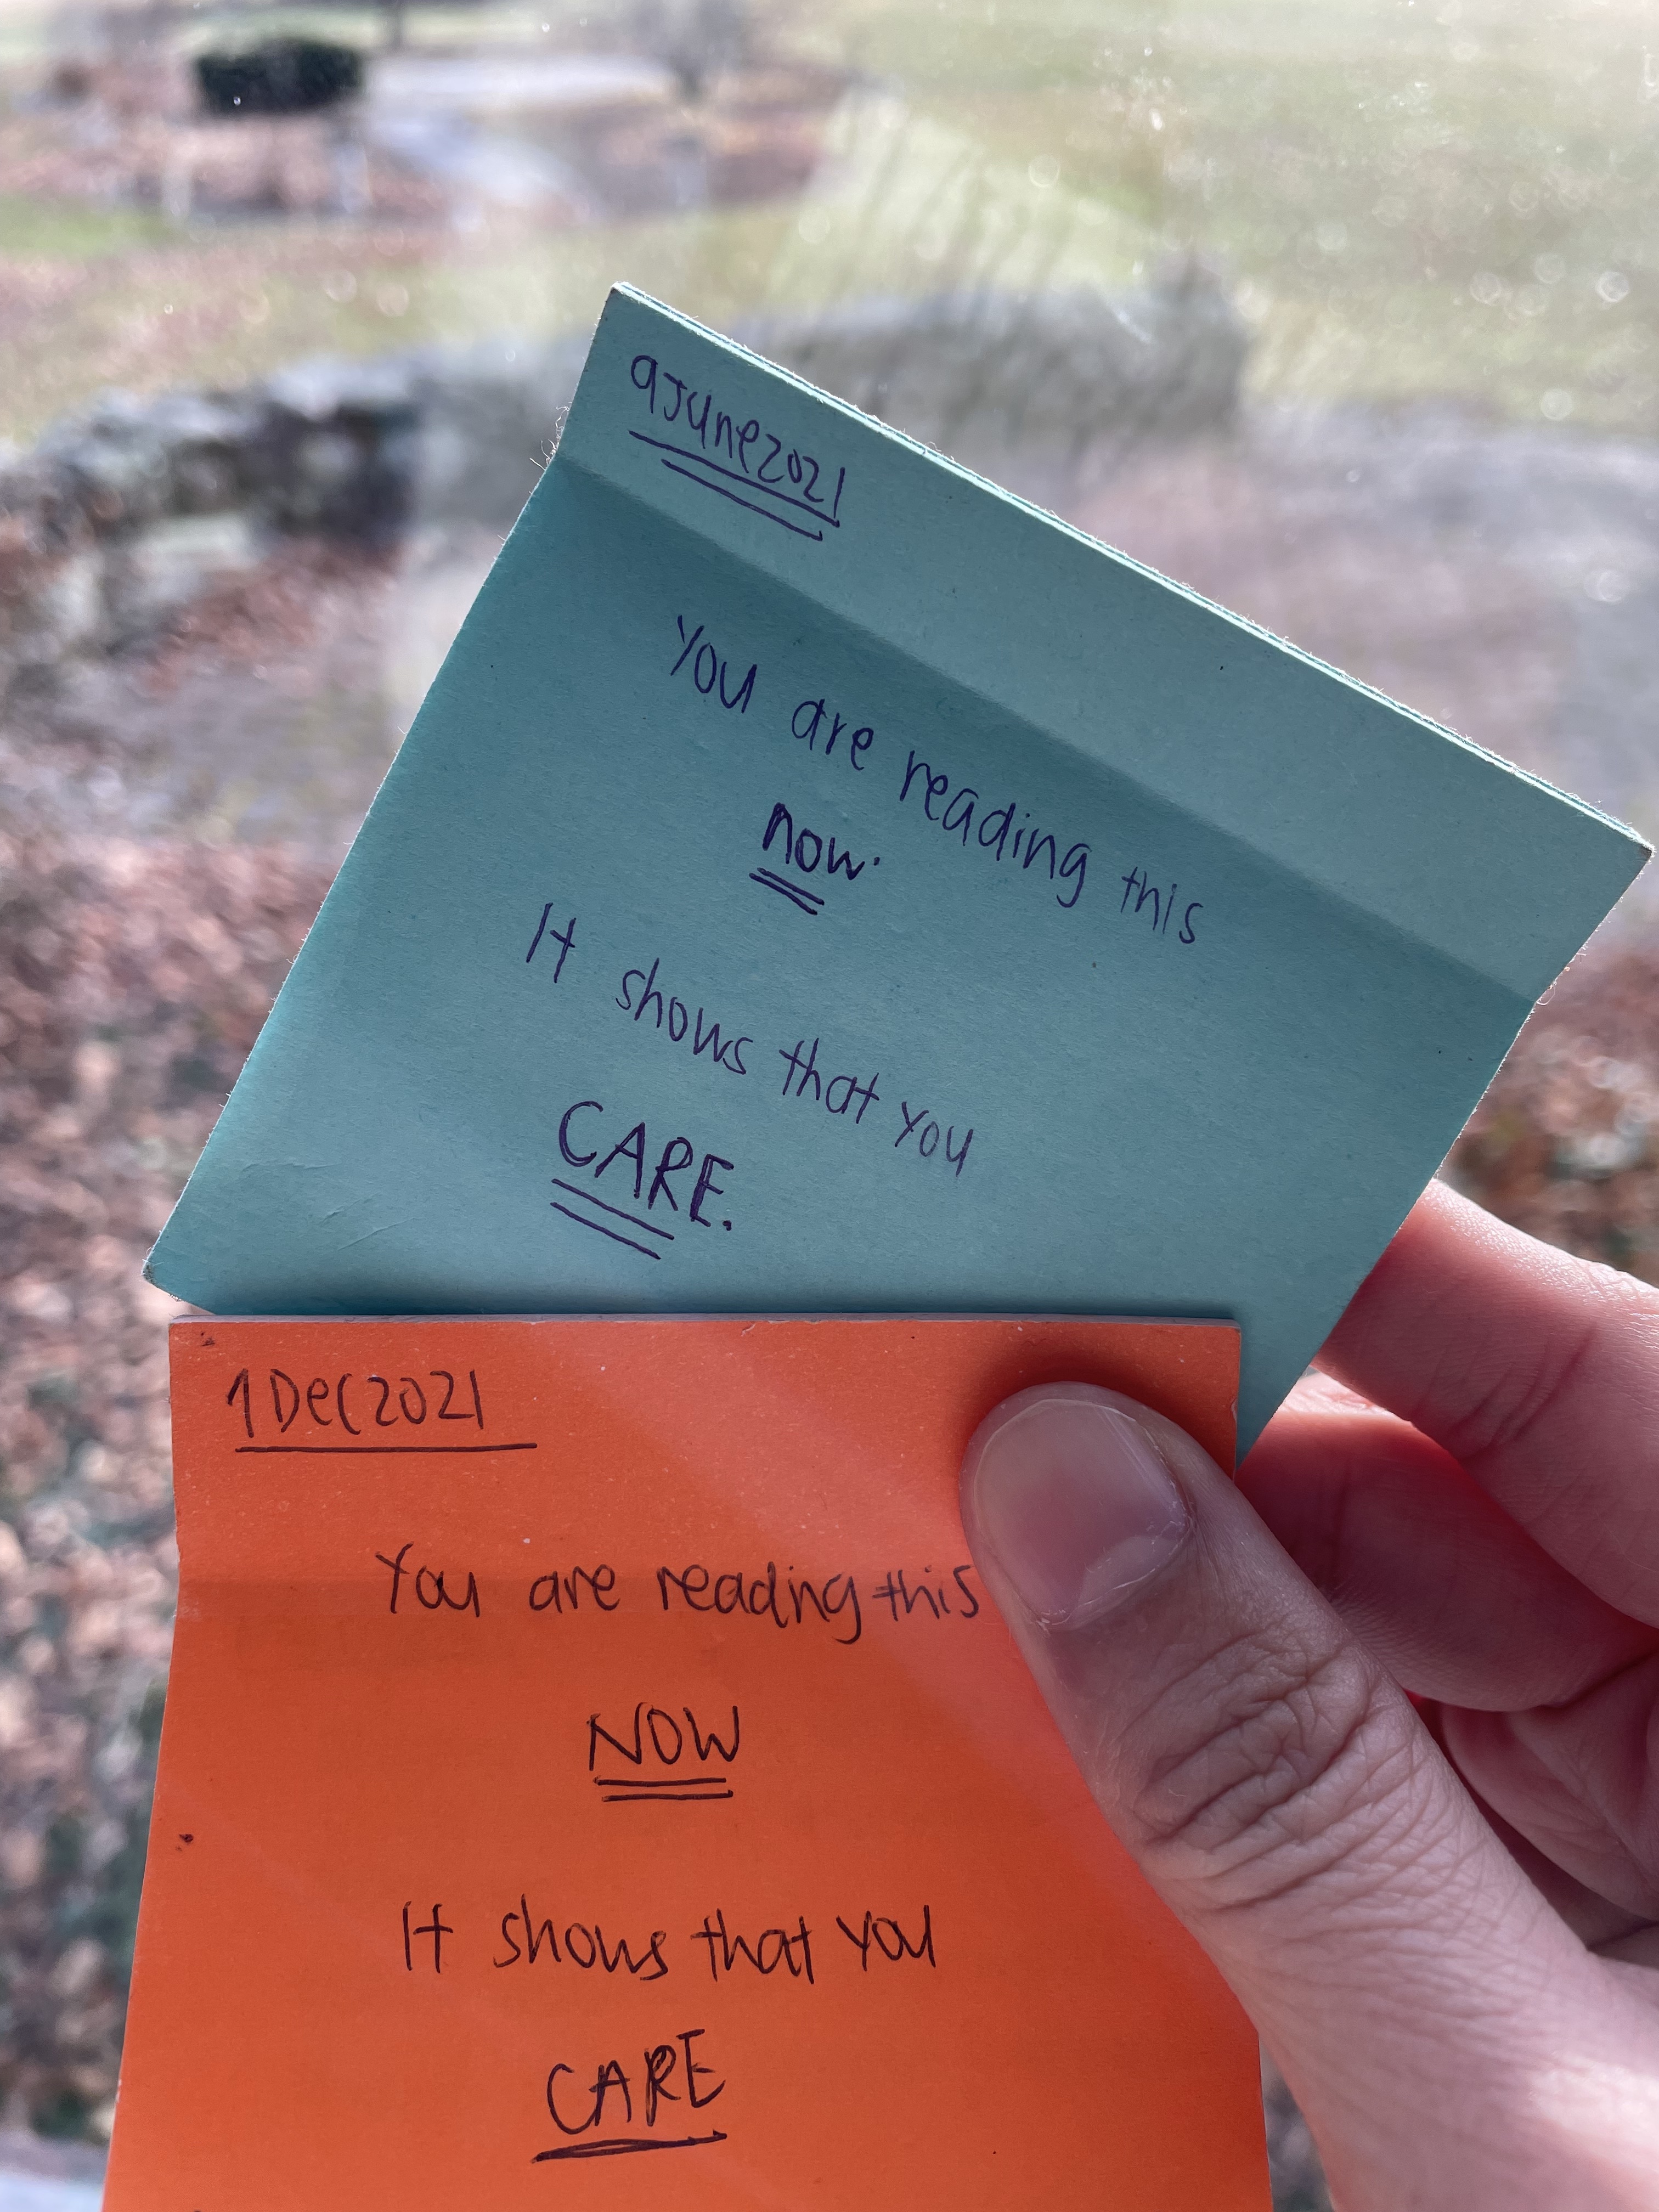 9June2021
You are reading this
now.
It shows that you
CARE.
1Dec2021
You are reading this
NOW
It shows that you
CARE